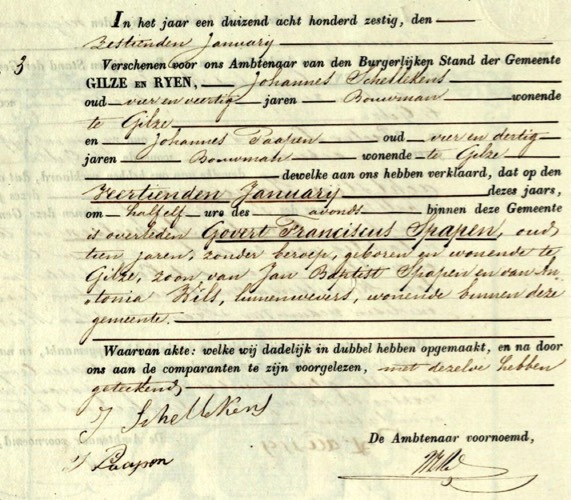 In het jaar een duizend acht honderd zestig, den
Zestienden January
3 Verschenen voor ons Ambtenaar van den Burgerlijken Stand der Gemeente
GILZE EN RYEN, Johannes Schellekens
oud vier en veertig jaren Bouwman wonende
te Gilze
en Johannes Paapen oud vier en dertig
jaren Bouwman wonende te Gilze
dewelke aan ons hebben verklaard, dat op den
Veertienden January dezes jaars,
om half elf ure des avonds binnen deze Gemeente
is overleden Govert Franciscus Spapen, oud
tien jaren, zonder beroep, geboren en wonende te
Gilze, zoon van Jan Baptist Spapen en van An-
tonia Kils, linnenwevers, wonende binnen deze
gemeente.
Waarvan akte: welke wij dadelijk in dubbel hebben opgemaakt, en na door
ons aan de comparanten te zijn voorgelezen, met dezelve hebben
geteekend,
J Schellekens
De Ambtenaar voornoemd,
J Paapen